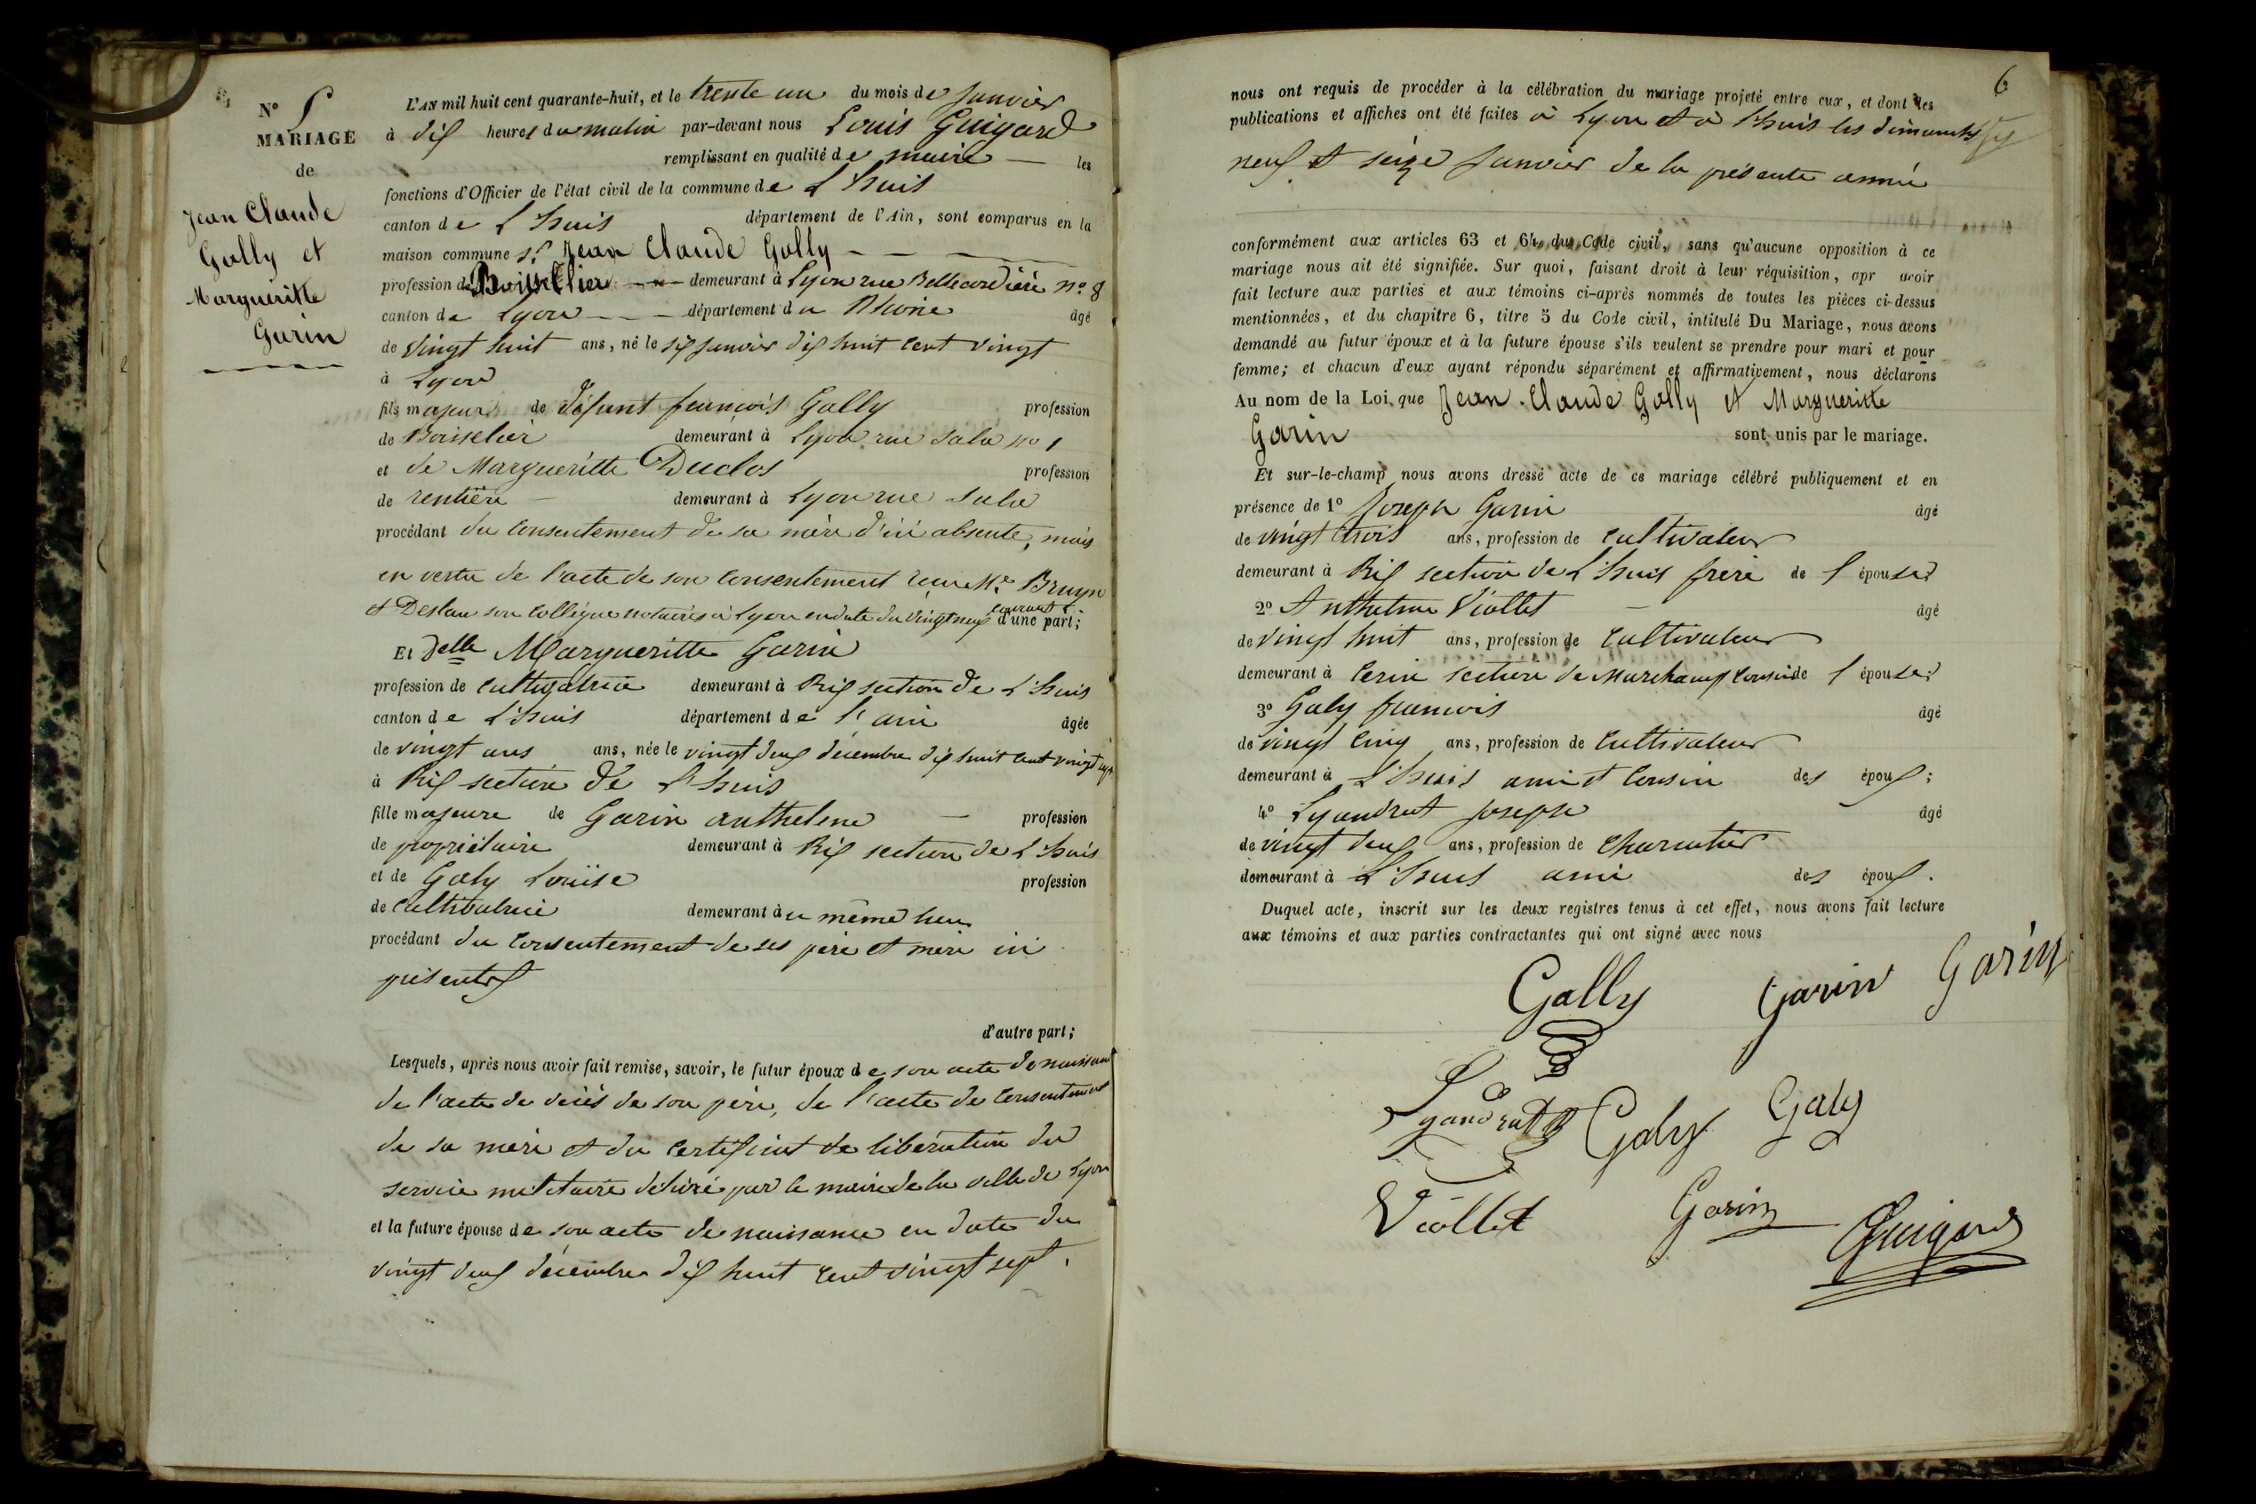 N° 5
MARIAGE
de
Jean Claude
Gally et
Margueritte
Garin
L'AN mil huit cent quarante-huit, et le trente un du mois de Janvier
à dix heures du matin par-devant nous Louis Guigard
remplissant en qualité de maire les
fonctions d'Officier de l'état civil de la commune de L'huis
canton de L'huis département de l'Ain, sont comparus en la
maison commune Sr Jean Claude Gally
profession de Boisselier demeurant à Lyon rue Bellecordière n° 8
canton de Lyon département du Rhône âgé
de vingt huit ans, né le six janvier dix huit cent vingt
à Lyon
fils majeur de défunt francois Gally profession
de Boisselier demeurant à Lyon rue Sala no 1
et de Margueritte Duclos profession
de rentière demeurant à Lyon rue Sala
procédant du consentement de sa mère d'ici absente, mais
en vertu de l'acte de son consentement reçu Me Bruyn
et Deslau son collègue notaires à Lyon en date du vingt neuf courant d'une part;
Et Delle Margueritte Garin
profession de cultivatrice demeurant à Rix section de L'huis
canton de L'huis département de l'ain âgée
de vingt ans ans, née le vingt deux décembre dix huit cent vingt sept
à Rix section de L'huis
fille majeure de Garin anthelme profession
de propriétaire demeurant à Rix section de L'huis
et de Galy Louise profession
de cultivatrice demeurant au même lieu
procédant du consentement de ses père et mère ici
présents
d'autre part;
Lesquels, après nous avoir fait remise, savoir, le futur époux de son acte de naissance
de l'acte de décès de son père, de l'acte de consentement
de sa mère et du certificat de libération du
service militaire délivré par le maire de la ville de Lyon
et la future épouse de son acte de naissance en date du
vingt deux décembre dix huit cent vingt sept.
6
nous ont requis de procéder à la célébration du mariage projeté entre eux, et dont les
publications et affiches ont été faites à Lyon et à L'huis les dimanches
neuf et seize Janvier de la présente année
conformément aux articles 63 et 64 du Code civil, sans qu'aucune opposition à ce
mariage nous ait été signifiée. Sur quoi, faisant droit à leur réquisition, apr avoir
fait lecture aux parties et aux témoins ci-après nommés de toutes les pièces ci-dessus
mentionnées, et du chapitre 6, titre 5 du Code civil, intitulé Du Mariage, nous avons
demandé au futur époux et à la future épouse s'ils veulent se prendre pour mari et pour
femme; et chacun d'eux ayant répondu séparément et affirmativement, nous déclarons
Au nom de la Loi, que Jean Claude Gally et Margueritte
Garin sont unis par le mariage.
Et sur-le-champ nous avons dressé acte de ce mariage célébré publiquement et en
présence de 1° Joseph Garin âgé
de vingt trois ans, profession de cultivateur
demeurant à Rix section de L'huis frère de l'épouse;
2° Anthelme Viollet âgé
de vingt huit ans, profession de cultivateur
demeurant à Cerin section de Marchamp cousin de l'épouse;
3° Galy francois âgé
de vingt cinq ans, profession de cultivateur
demeurant à L'huis ami et cousin des époux;
4° Lyandrat Joseph âgé
de vingt deux ans, profession de charcutier
demeurant à L'huis ami des époux.
Duquel acte, inscrit sur les deux registres tenus à cet effet, nous avons fait lecture
aux témoins et aux parties contractantes qui ont signé avec nous
Gally Garin Garin
Lyandrat Galy Galy
Viollet Garin Guigard